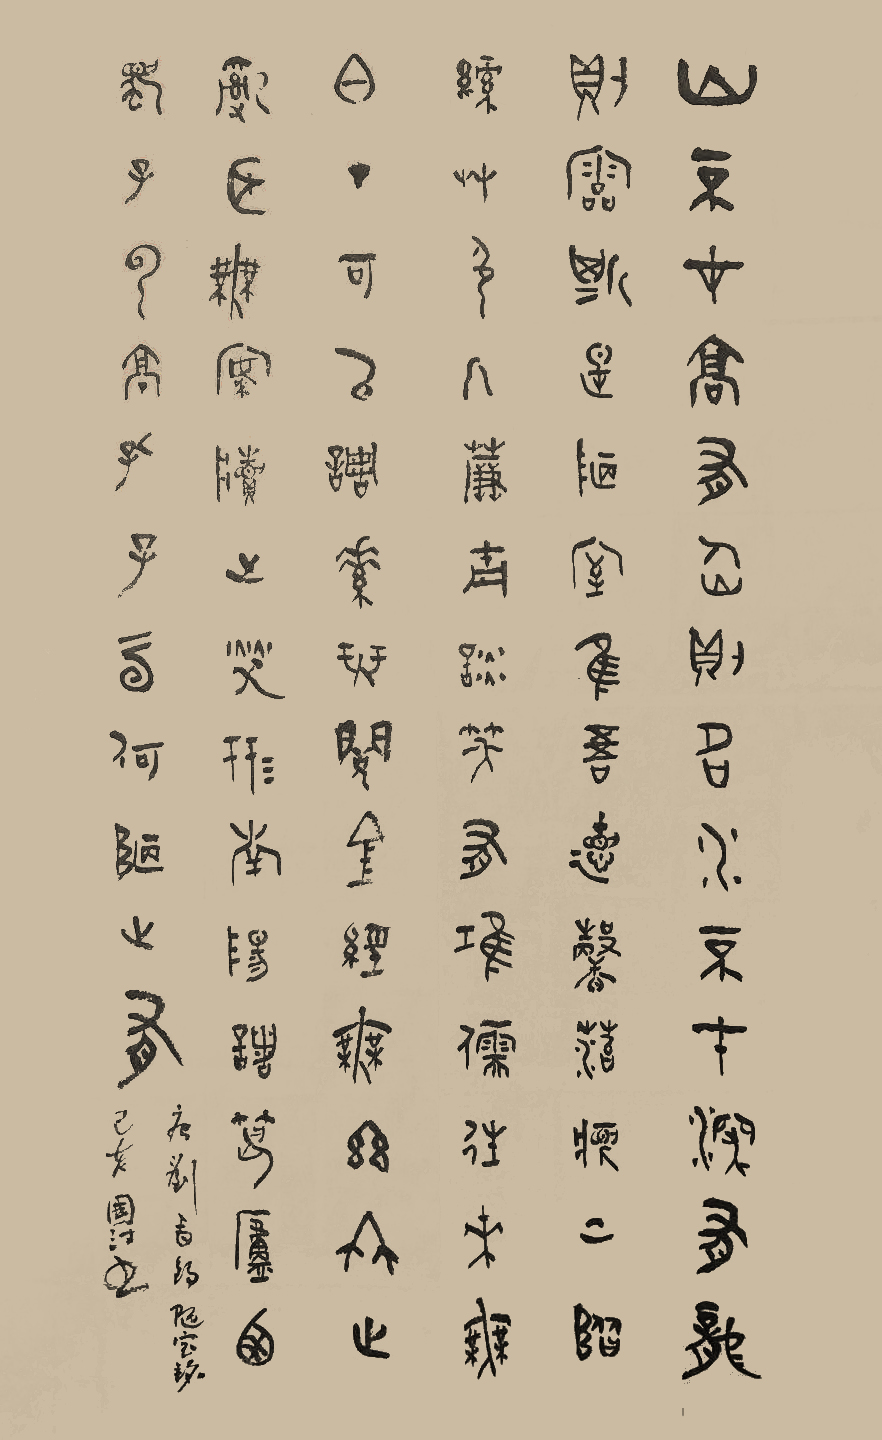 山不在高有仙則名水不在深有龍
則靈斯是陋室惟吾德馨苔痕上階
綠草色入簾青談笑有鴻儒往來無
白丁可以調素琴閱金經無絲竹之
亂耳無案牘之勞形南陽諸葛廬西
蜀子雲亭孔子云何陋之有
唐劉禹錫陋室銘
己亥國書